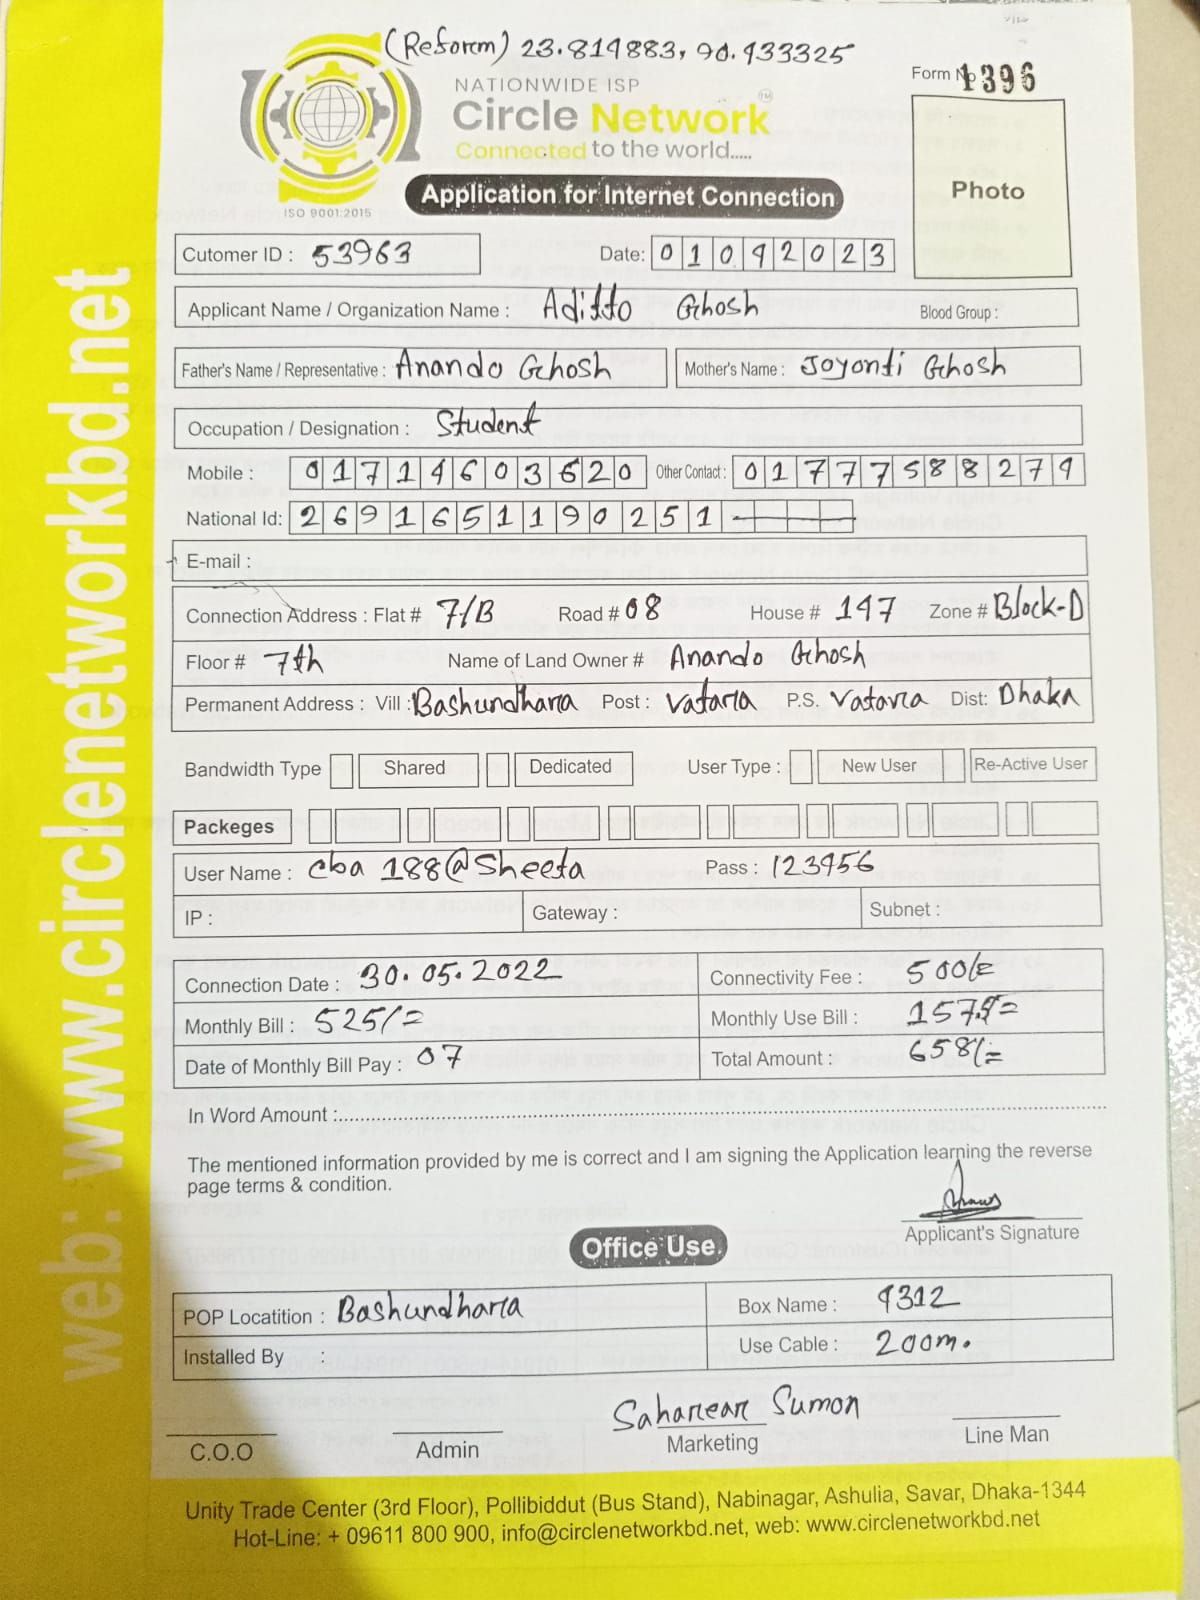 (Reform) 23.819883, 90.433325
NATIONWIDE ISP
Circle Network TM
Connected to the world.....
ISO 9001:2015
Form No 1396
Photo
Application for Internet Connection
Cutomer ID : 53963
Date: 01042023
Applicant Name / Organization Name : Aditto Ghosh Blood Group :
Father's Name / Representative : Anando Ghosh Mother's Name : Joyonti Ghosh
Occupation / Designation : Student
Mobile : 01714603620 Other Contact : 01777588279
National Id: 2691651190251
E-mail :
Connection Address : Flat # 7/B Road # 08 House # 147 Zone # Block-D
Floor # 7th Name of Land Owner # Anando Ghosh
Permanent Address : Vill : Bashundhara Post : Vatara P.S. Vatara Dist: Dhaka
Bandwidth Type Shared Dedicated User Type : New User Re-Active User
Packeges
User Name : cba 188@Sheeta Pass : 123456
IP : Gateway : Subnet :
Connection Date : 30.05.2022 Connectivity Fee : 500/=
Monthly Bill : 525/= Monthly Use Bill :
Date of Monthly Bill Pay : 07 Total Amount : 658/=
In Word Amount :
The mentioned information provided by me is correct and I am signing the Application learning the reverse
page terms & condition.
Applicant's Signature
Office Use.
POP Locatition : Bashundhara Box Name : 4312
Installed By : Use Cable : 200m.
Saharear Sumon
C.O.O Admin Marketing Line Man
Unity Trade Center (3rd Floor), Pollibiddut (Bus Stand), Nabinagar, Ashulia, Savar, Dhaka-1344
Hot-Line: + 09611 800 900, info@circlenetworkbd.net, web: www.circlenetworkbd.net
web: www.circlenetworkbd.net